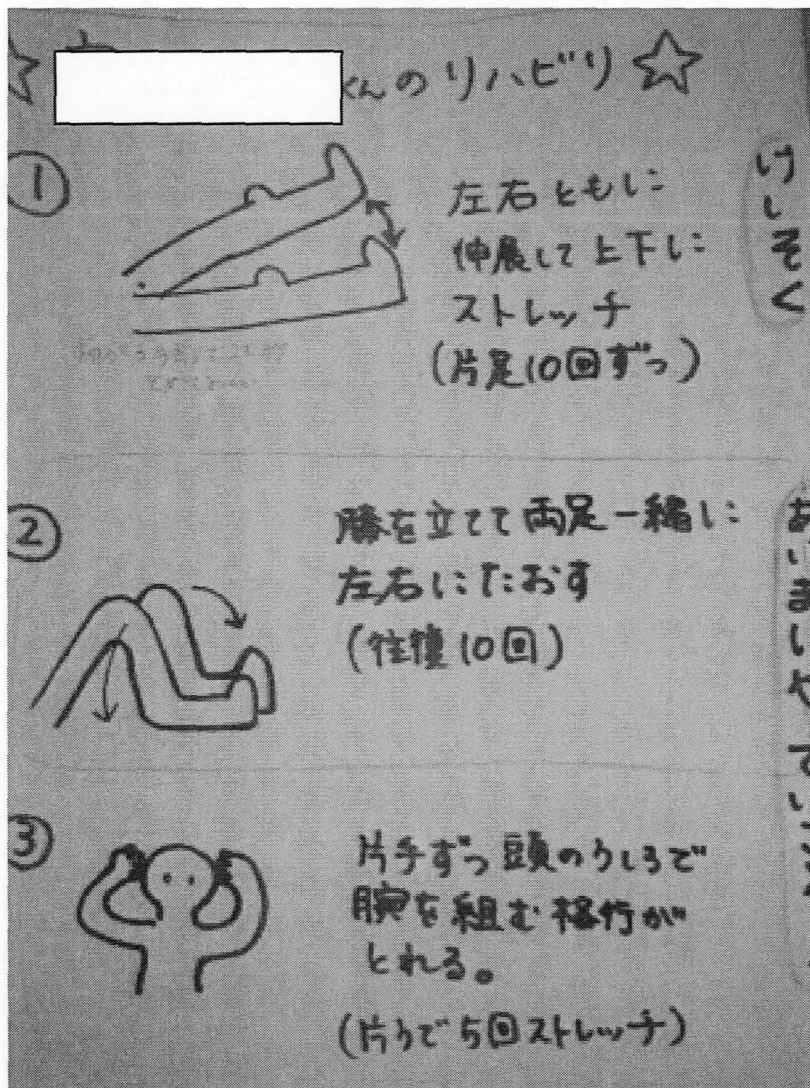 くんのリハビリ
①
左右ともに
伸展して上下に
ストレッチ
(片足10回ずつ)
けしそく
②
膝を立てて両足一緒に
左右にたおす
(往復10回)
③
片手ずつ頭のうしろで
腕を組む格好が
とれる。
(片うで5回ストレッチ)